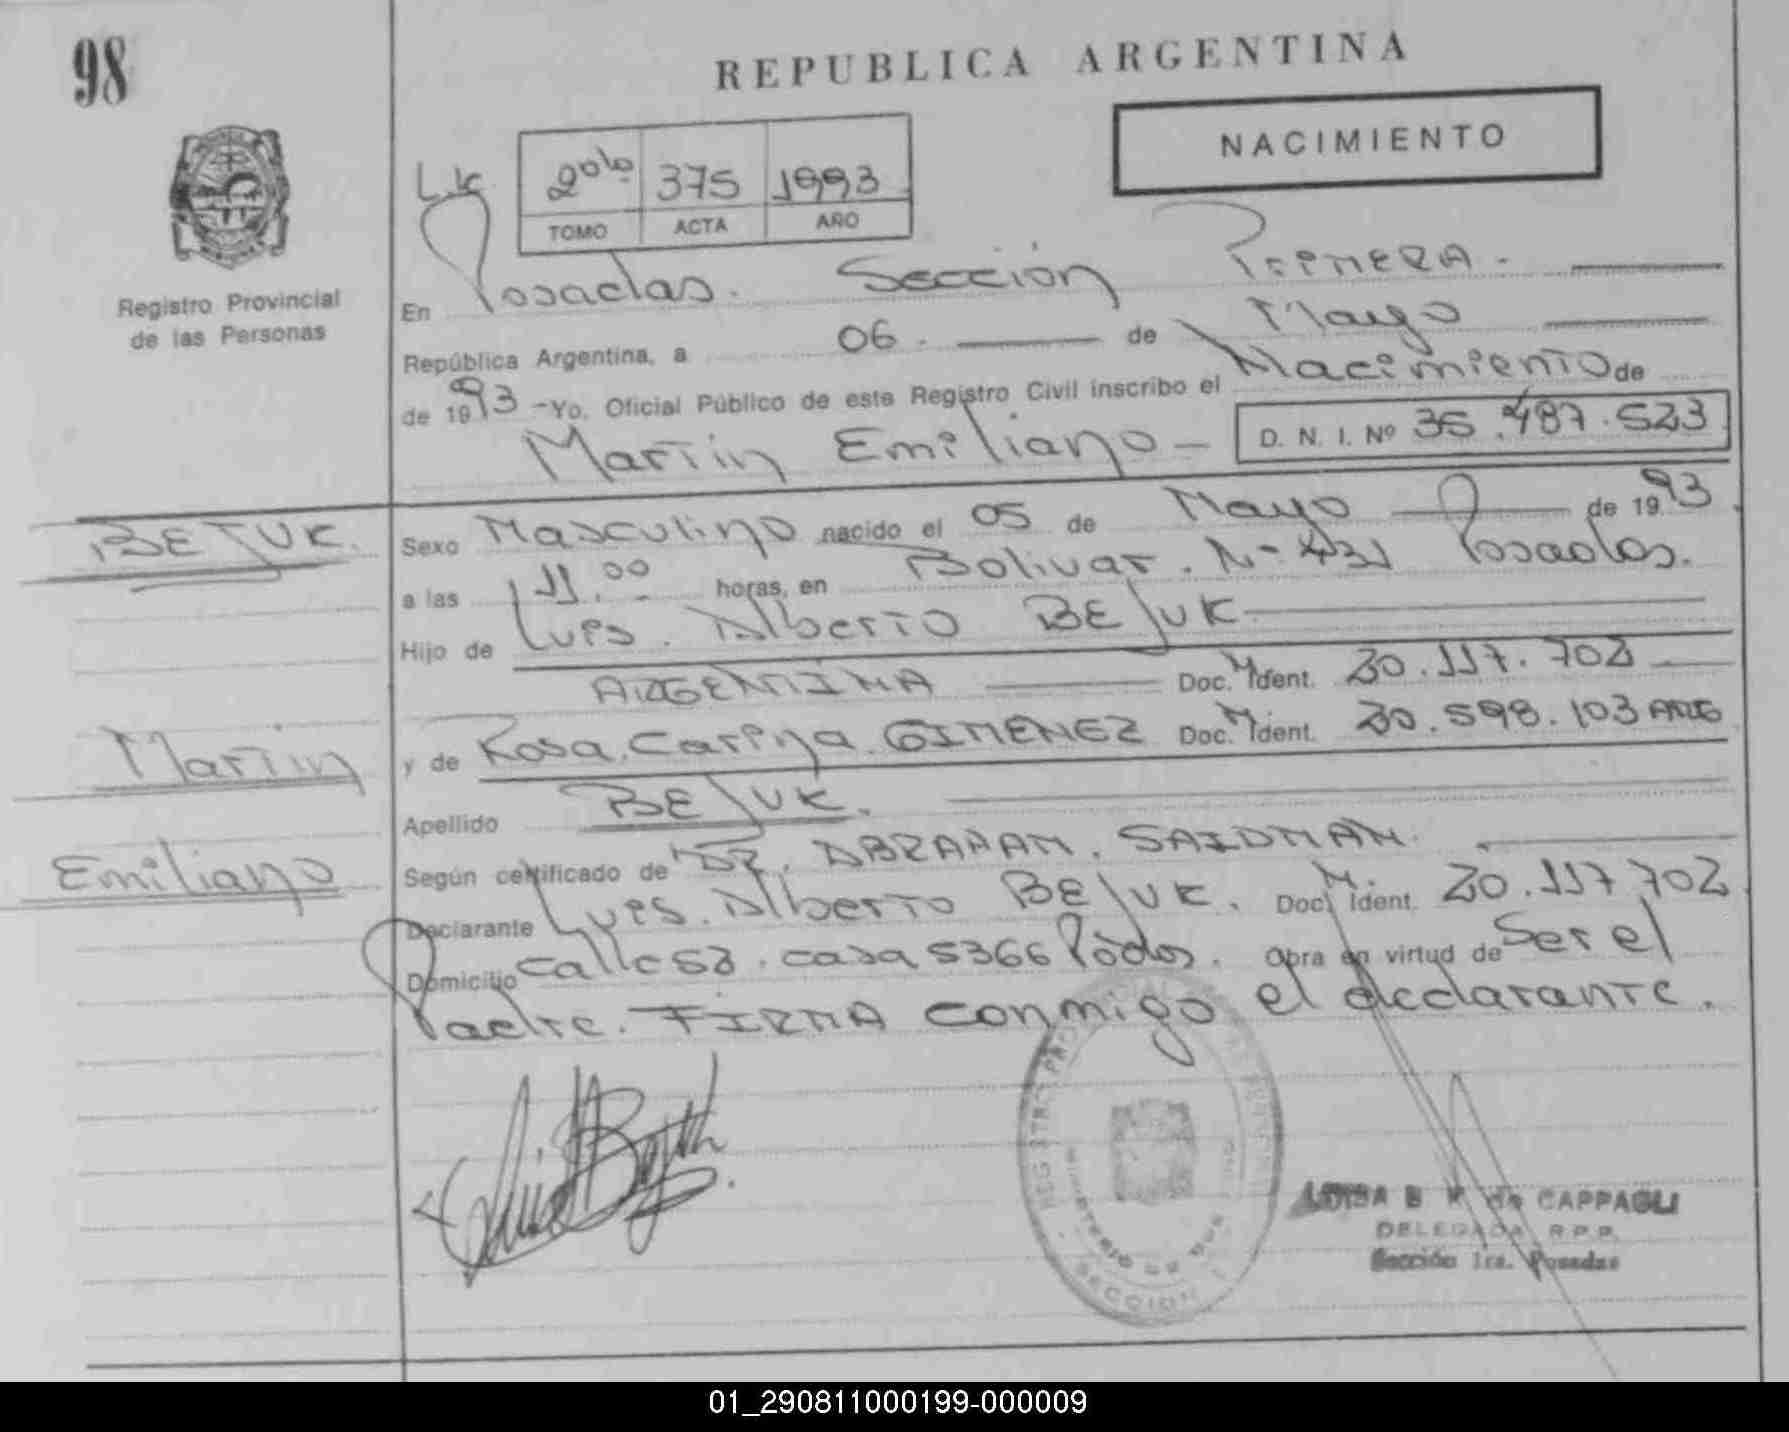 98
REPUBLICA ARGENTINA
NACIMIENTO
2º bis 375 1993
TOMO ACTA AÑO
Registro Provincial
de las Personas
En Posadas. Sección Primera.
República Argentina, a 06. de Mayo
de 1993 - Yo. Oficial Público de este Registro Civil inscribo el Nacimiento de
Martin Emiliano - D. N. I. Nº 35.487.523
BEJUK. Sexo Masculino nacido el 05 de Mayo de 1993
a las 11.00 horas, en Bolivar. N- 431 Posadas.
Hijo de Luis. Alberto BEJUK
ARGENTINA Doc. M. Ident. 20.117.702
Martin y de Rosa. Carina. GIMENEZ Doc. M. Ident. 20.598.103 ARG
Apellido BEJUK.
Emiliano Según certificado de DR. ABRAHAM. SAIDMAN.
Declarante Luis. Alberto BEJUK. Doc. M. Ident. 20.117.702
Domicilio Calle 53. casa 5366 Pdos. Obra en virtud de Ser el
Padre. FIRMA conmigo el declarante.
SECCION
de CAPPAGLI
DELEGADA R.P.P.
Sección 1ra. Posadas
01_290811000199-000009